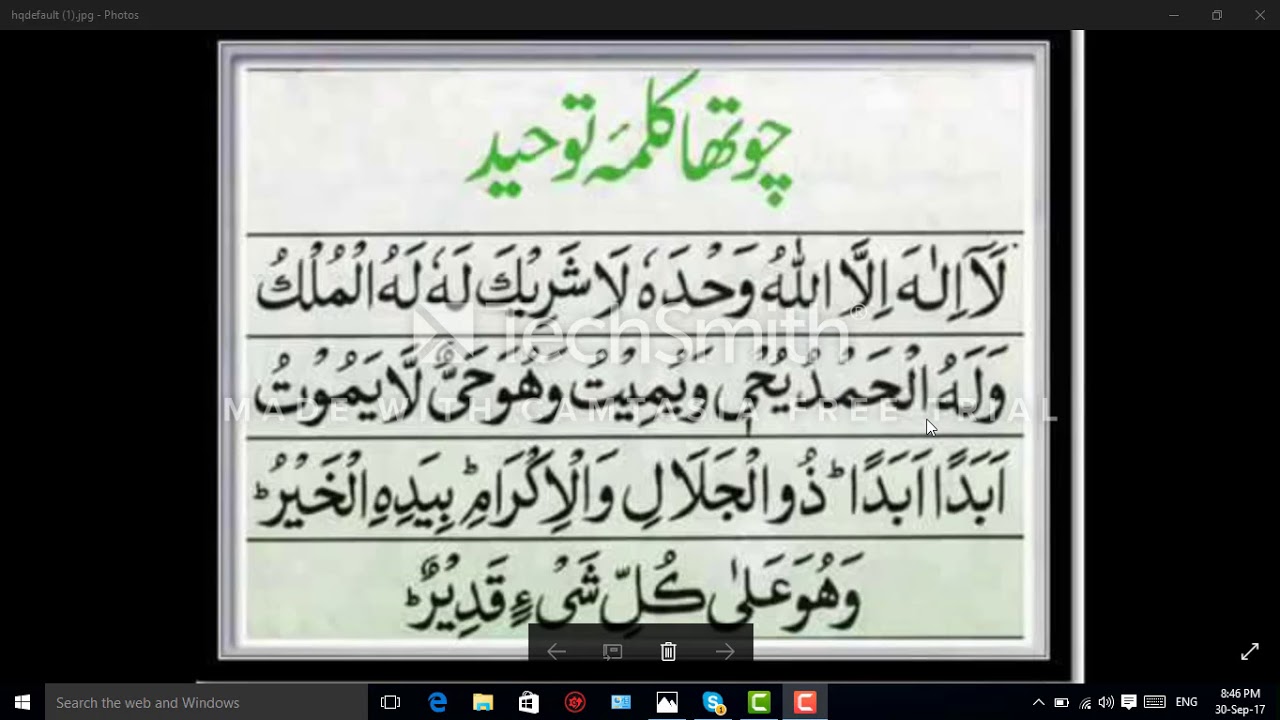 hqdefault (1).jpg - Photos
چوتھا کلمۂ توحید
لَآ اِلٰهَ اِلَّا اللّٰهُ وَحْدَهٗ لَا شَرِيْكَ لَهٗ لَهُ الْمُلْكُ
TechSmith®
وَلَهُ الْحَمْدُ يُحْيٖ وَيُمِيْتُ وَهُوَ حَىٌّ لَّا يَمُوْتُ
MADE WITH CAMTASIA FREE TRIAL
اَبَدًا اَبَدًا ؕ ذُو الْجَلَالِ وَالْاِكْرَامِ ؕ بِيَدِهِ الْخَيْرُ ؕ
وَهُوَ عَلٰى كُلِّ شَىْءٍ قَدِيْرٌ ؕ
Search the web and Windows
ENG
8:46 PM
30-Sep-17